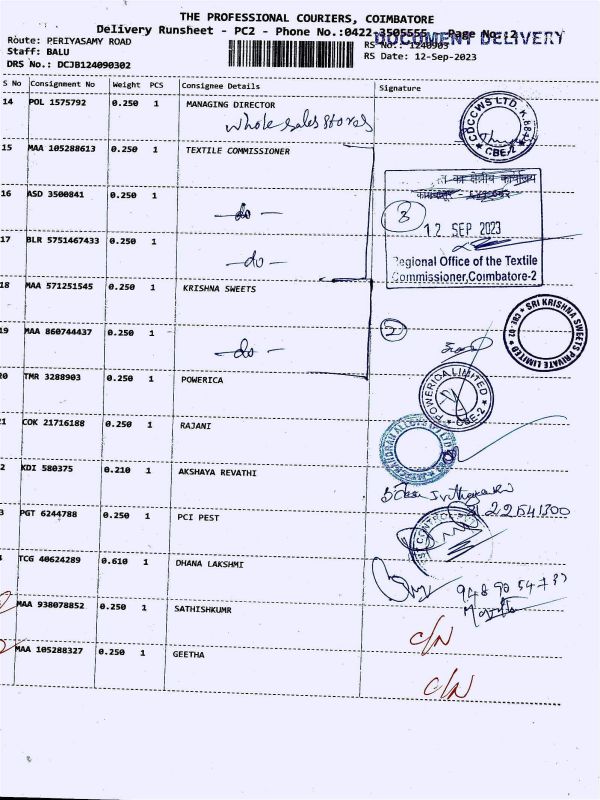 THE PROFESSIONAL COURIERS, COIMBATORE
Delivery Runsheet - PC2 - Phone No.:0422-3505555 Page No.:2
DOCUMENT DELIVERY
Route: PERIYASAMY ROAD
RS No.: 1240903
Staff: BALU
RS Date: 12-Sep-2023
DRS No.: DCJB124090302
S No Consignment No Weight PCS Consignee Details Signature
14 POL 1575792 0.250 1 MANAGING DIRECTOR
Whole sales stores
CDCCWS LTD. K.884
CBE-2
15 MAA 105288613 0.250 1 TEXTILE COMMISSIONER
का क्षेत्रीय कार्यालय
16 ASD 3500841 0.250 1 -do-
3
12 SEP 2023
17 BLR 5751467433 0.250 1 -do-
Regional Office of the Textile
Commissioner,Coimbatore-2
18 MAA 571251545 0.250 1 KRISHNA SWEETS
SRI KRISHNA SWEETS PRIVATE LIMITED
19 MAA 860744437 0.250 1 -do-
2
20 TMR 3288903 0.250 1 POWERICA
POWERICA LIMITED
CBE-2
21 COK 21716188 0.250 1 RAJANI
2 KDI 580375 0.210 1 AKSHAYA REVATHI
3 PGT 6244788 0.250 1 PCI PEST
TCG 40624289 0.610 1 DHANA LAKSHMI
MAA 938078852 0.250 1 SATHISHKUMR
C/N
MAA 105288327 0.250 1 GEETHA
C/N